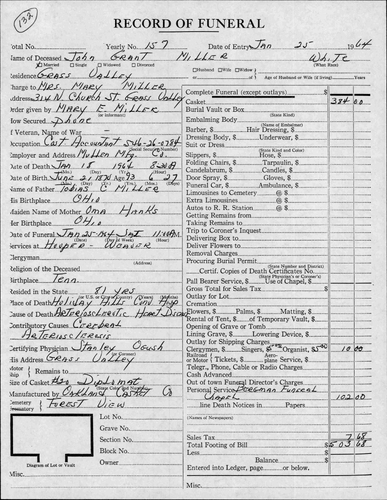 132
RECORD OF FUNERAL
Total No. Yearly No. 157 Date of Entry Jan 25 1964
Name of Deceased John Grant Miller White
Married Single Widowed Divorced Husband Wife Widow of (What Race)
Residence Grass Valley Age of Husband or Wife (if living) Years
Charge to Mrs. Mary Miller
Address 314 N Church St. Grass Valley
Order given by Mary E. Miller
How Secured phone
If Veteran, Name of War
Occupation Cost Accountant 546-26-0784
Employer and Address Mullen Mfg. Co.
Date of Death Jan 18 1964 5:20 A
Date of Birth June 21 1870 Age 93 6 27
Name of Father Tobias C Miller
His Birthplace Ohio
Maiden Name of Mother Oma Hanks
Her Birthplace Ohio
Date of Funeral Jan 25-1964 Sat 11:00 AM
Services at Hooper-Weaver
(Address)
Clergyman
Religion of the Deceased
Birthplace Tenn.
Resided in the State 81 yrs
Place of Death Holiday Hills Conv Hosp
Cause of Death Arteriosclerotic Heart Disease
Contributory Causes Cerebral
Arteriosclerosis
Certifying Physician Stanley Ogush
His Address Grass Valley
Motor
Ship Remains to
Size of Casket Diplomat
Manufactured by Oakland Casket Co
Cemetery
Crematory Forest View
Lot No.
Grave No.
Section No.
Block No.
Owner
Diagram of Lot or Vault
Misc.
Complete Funeral (except outlays) $
Casket 384 00
Burial Vault or Box
(State Kind)
Embalming Body
(Name of Embalmer)
Barber, $ Hair Dressing, $
Dressing Body, $ Underwear, $
Suit or Dress
(State Kind and Color)
Slippers, $ Hose, $
Folding Chairs, $ Tarpoulin, $
Candelabrum, $ Candles, $
Door Spray, $ Gloves, $
Funeral Car, $ Ambulance, $
Limousines to Cemetery @ $
Extra Limousines @ $
Autos to R. R. Station @ $
Getting Remains from
Taking Remains to
Trip to Coroner's Inquest
Delivering Box to
Deliver Flowers to
Removal Charges
Procuring Burial Permit
(State Number and District)
Certif. Copies of Death Certificates No.
(State Physician's or Coroner's)
Pall Bearer Service, $ Use of Chapel, $
Gross Total for Sales Tax $
Outlay for Lot
Cremation
Flowers, $ Palms, $ Matting, $
Rental of Tent, $ of Temporary Vault, $
Opening of Grave or Tomb
Lining Grave, $ Lowering Device, $
Outlay for Shipping Charges
Clergyman, $ Singers, $ Organist, $ 10 00
Railroad
or Motor Tickets, $ Aero-
plane Service, $
Telegr., Phone, Cable or Radio Charges
Cash Advanced
Out of town Funeral Director's Charges
Personal Service Bergman Funeral
Chapel 102 00
line Death Notices in Papers
(Names of Newspapers)
Sales Tax 7 68
Total Footing of Bill $ 503 68
Less $
Balance $
Entered into Ledger, page or below.
Misc.